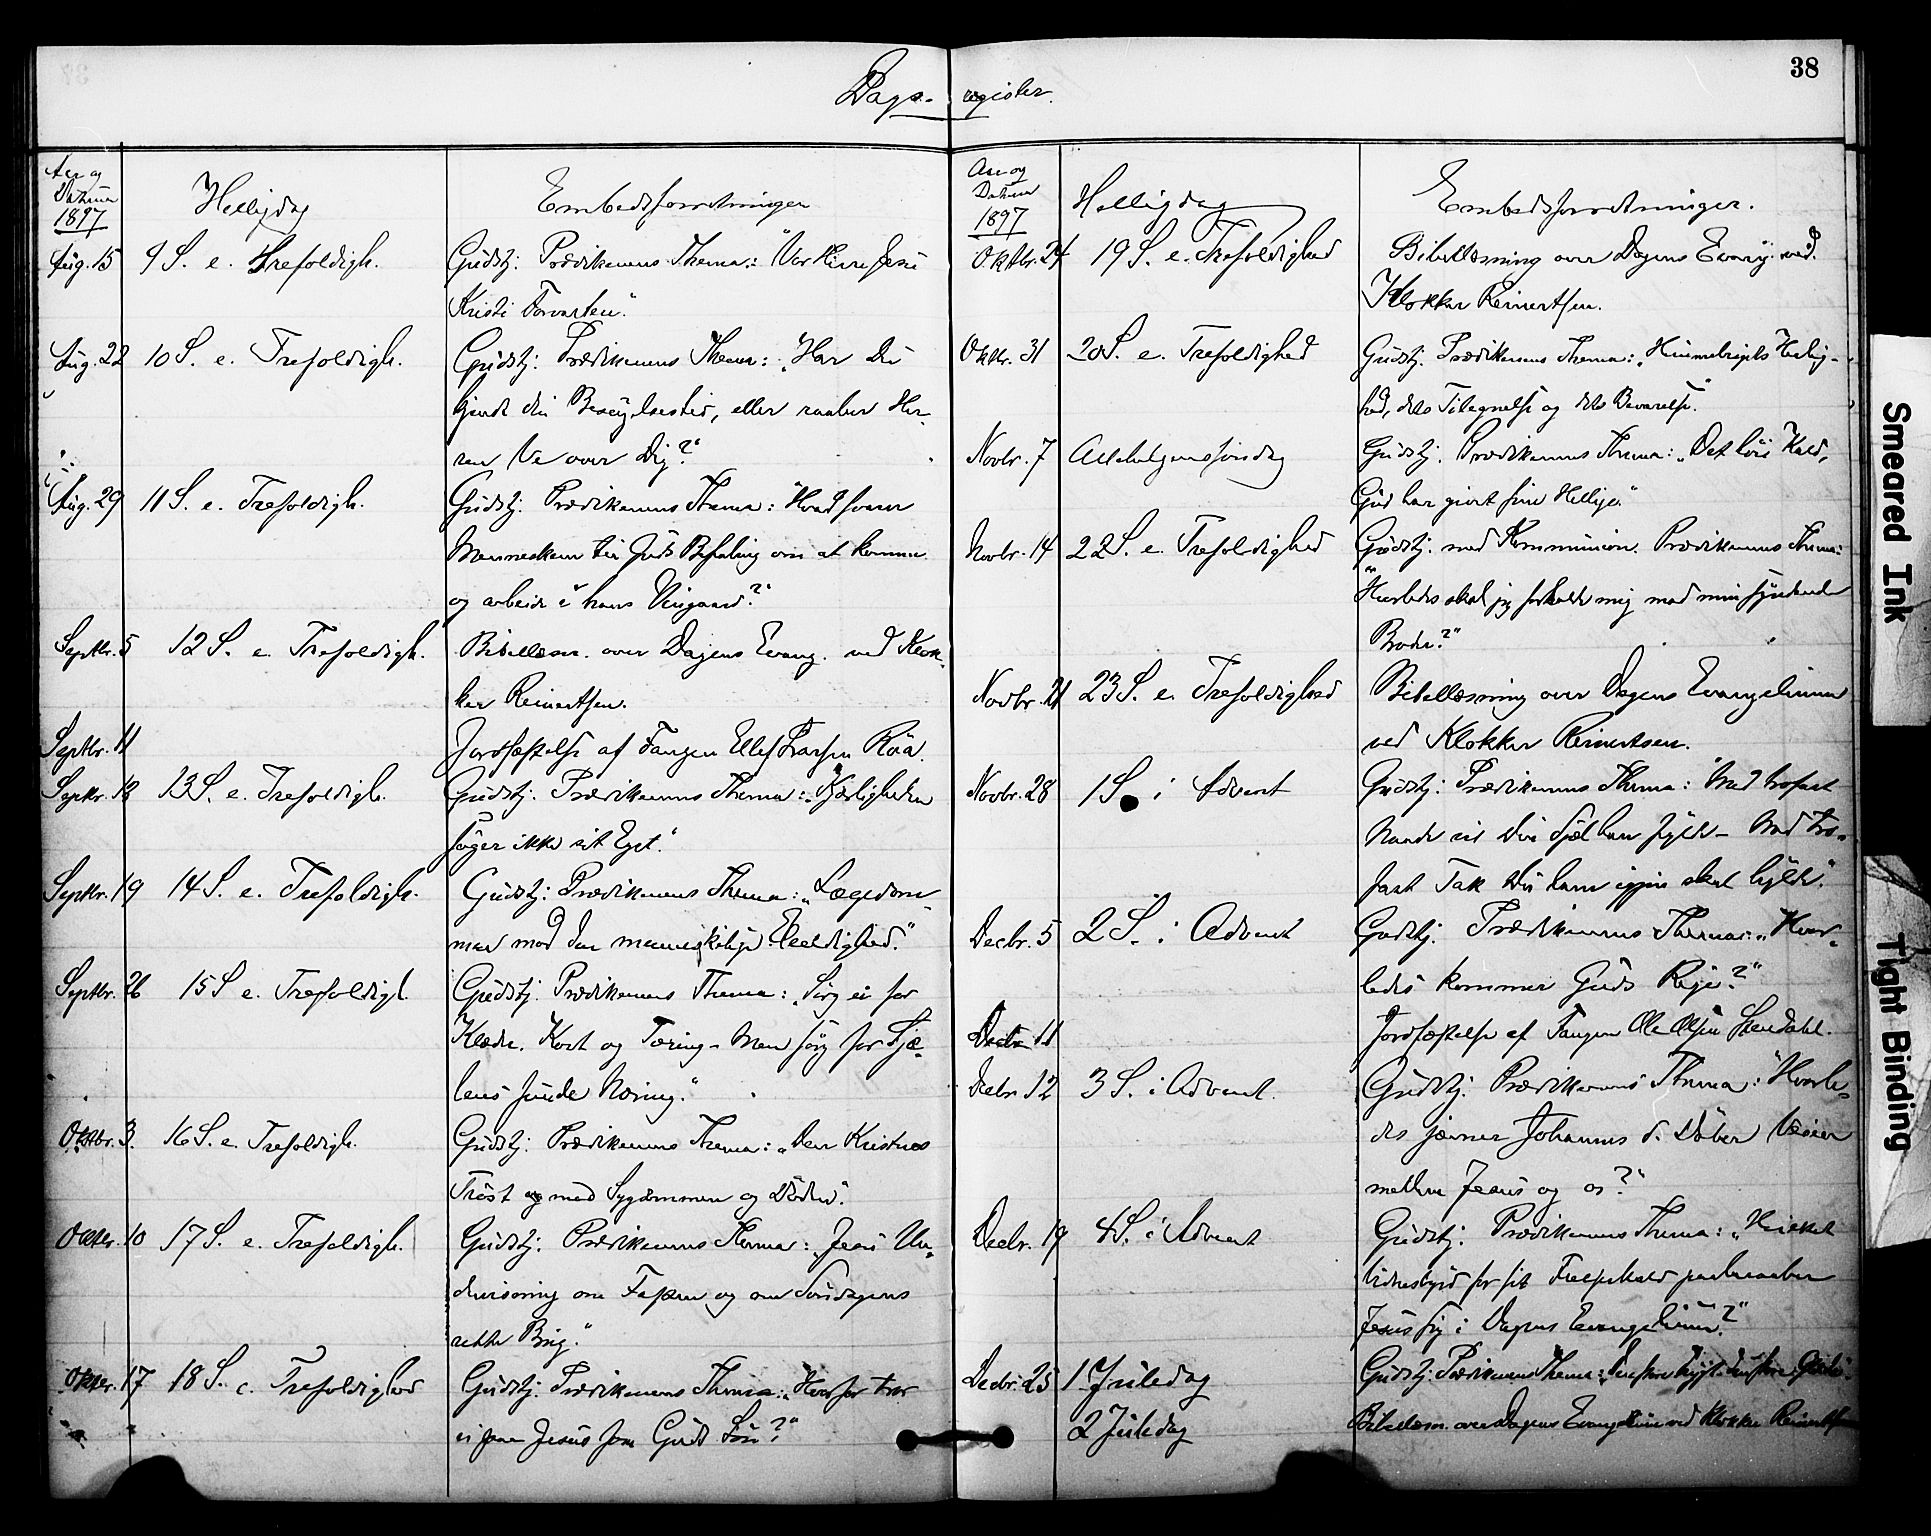 38
Dags- register.
Aar og
Datum
1897
Helligdag
Embedsforretninger
Aug. 15 9 S. e. Trefoldigh. Gudstj. Prædikenens Thema: "Vor Herre Jesu
Kristi Forvarten."
Aug. 22 10 S. e. Trefoldigh. Gudstj: Prædikenens Thema: "Har Du
kjendt din Besøgelsestid, eller raaber Her-
ren Ve over Dig?"
Aug. 29 11 S. e. Trefoldigh. Gudstj. Prædikenens Thema: "Hvad svarer
Mennesken til Guds Befaling om at komme
og arbeide i hans Vingaard?"
Septbr. 5 12 S. e. Trefoldigh. Bibellæsn. over Dagens Evang. ved Klok-
ker Reinertsen.
Septbr. 11 Jordfæstelse af Fangen Ellef Larsen Röa.
Septbr. 12 13 S. e. Trefoldigh. Gudstj. Prædikenens Thema: "Kjærligheden
söger ikke sit Eget."
Septbr. 19 14 S. e. Trefoldigh. Gudstj: Prædikenens Thema: "Lægedom-
men mod den menneskelige Elendighed."
Septbr. 26 15 S e. Trefoldigh. Gudstj. Prædikenens Thema: "Sörg ei for
Klæder, Kost og Tæring - Men sörg for Sjæ-
lens sunde Næring."
Oktbr. 3. 16 S. e. Trefoldigh. Gudstj. Prædikenens Thema: "Den Kristnes
Tröst mod Sygdommen og Döden."
Oktbr. 10 17 S. e. Trefoldigh. Gudstj. Prædikenens Thema: "Jesu Un-
dervisning om Festen og om Söndagens
rette Brug."
Oktbr. 17 18 S. e. Trefoldighed Gudstj. Prædikenens Thema: "Hvorfor tror
vi paa Jesus som Guds Sön?"
Aar og
Datum
1897
Helligdag
Embedsforretninger.
Oktbr. 24 19 S. e. Trefoldighed Bibellæsning over Dagens Evang. ved
Klokker Reinertsen.
Oktbr. 31 20 S. e. Trefoldighed Gudstj. Prædikenens Thema: "Himmerigets Herlig-
hed, dets Tilegnelse og dets Bevarelse."
Novbr. 7 Allehelgenssöndag Gudstj. Prædikenens Thema: "Det höie Kald,
Gud har givet sine Hellige."
Novbr. 14 22 S. e. Trefoldighed Gudstj. med Kommunion. Prædikenens Thema:
"Hvorledes skal jeg forholde mig mod min syndende
Broder?"
Novbr. 21 23 S. e. Trefoldighed Bibellæsning over Dagens Evangelium
ved Klokker Reinertsen.
Novbr. 28 1 S. i Advent Gudstj: Prædikenens Thema: "Med trofast
Naade vil Din Sjæl han fylde - Med tro-
fast Tak Du ham igjen skal hylde."
Decbr. 5 2 S. i Advent Gudstj. Prædikenens Thema: "Hvor-
ledes kommer Guds Rige?"
Decbr. 11 Jordfæstelse af Fangen Ole Olsen Stendahl.
Decbr. 12 3 S. i Advent. Gudstj. Prædikenens Thema: "Hvorle-
des jævner Johannes d. Döber Veien
mellem Jesus og os?"
Decbr. 19 4 S. i Advent Gudstj: Prædikenens Thema: "Hvilket
Vidnesbyrd for sit Frelserkald paaberaaber
Jesus sig i Dagens Evangelium?"
Decbr. 25 1 Juledag Gudstj: Prædikenens Thema: "Den store Frygt den store Glæde."
2 Juledag Bibellæsn. over Dagens Evangelium ved Klokker Reinertsen
Smeared Ink
Tight Binding